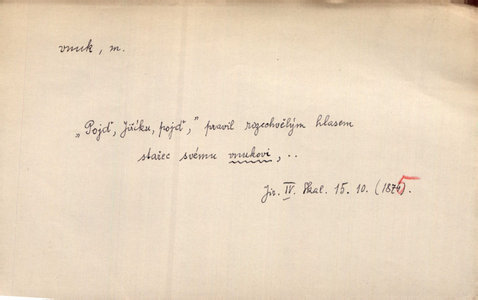 vnuk, m.
„Pojď, Jiříku, pojď,” pravil rozechvělým hlasem
stařec svému vnukovi, ..
Jir. IV. Skal. 15. 10. (1875).